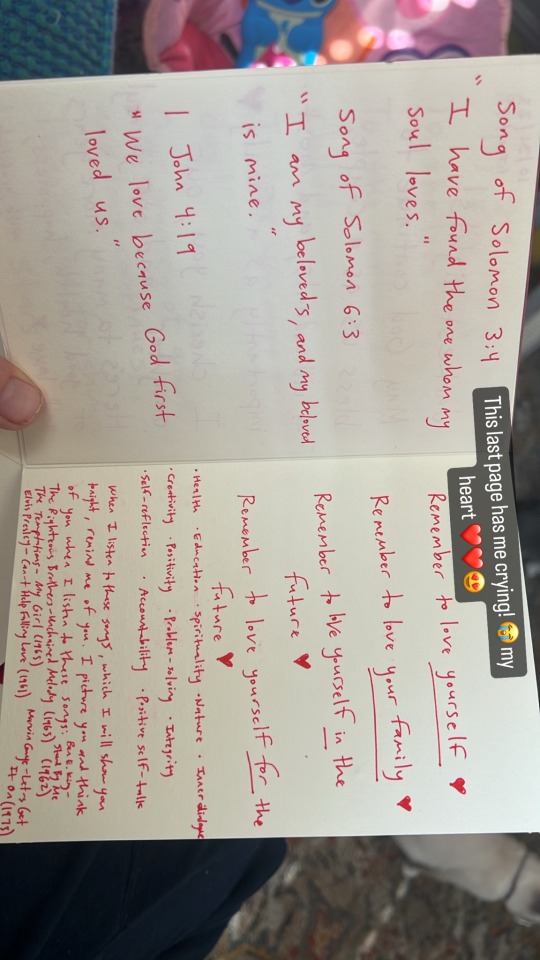 Song of Solomon 3:4
"I have found the one whom my
soul loves."
Song of Solomon 6:3
"I am my beloved's, and my beloved
is mine."
1 John 4:19
"We love because God first
loved us."
This last page has me crying! 😭 my
heart ❤️❤️😍
Remember to love yourself ♥
Remember to love your family ♥
Remember to love yourself in the
future ♥
Remember to love yourself for the
future ♥
• Health • Education • Spirituality • Nature • Inner dialogue
• Creativity • Positivity • Problem-solving • Integrity
• Self-reflection • Accountability • Positive self-talk
When I listen to these songs, which I will show you
tonight, remind me of you. I picture you and think
of you when I listen to these songs: Ben E. King-
Stand By Me (1962)
The Righteous Brothers-Unchained Melody (1965)
The Temptations - My Girl (1965)
Elvis Presley - Can't Help Falling Love (1961)
Marvin Gaye-Let's Get
It On (1973)